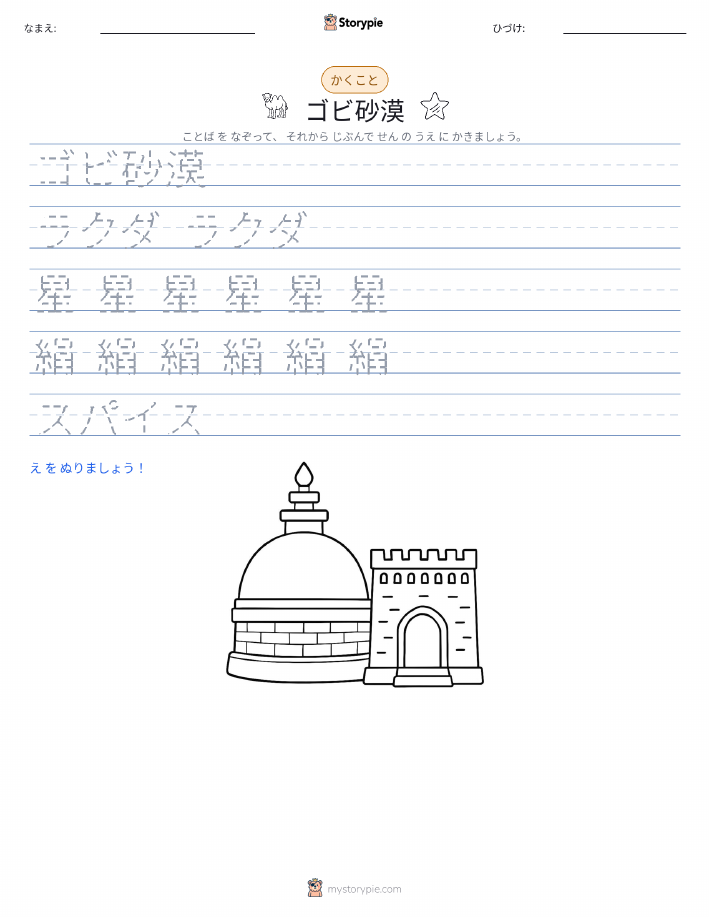 なまえ:
Storypie
ひづけ:
かくこと
ゴビ砂漠
ことば を なぞって、 それから じぶんで せん の うえ に かきましょう。
ゴビ砂漠
ラクダ ラクダ
星 星 星 星 星 星
絹 絹 絹 絹 絹 絹
スパイス
え を ぬりましょう！
mystorypie.com